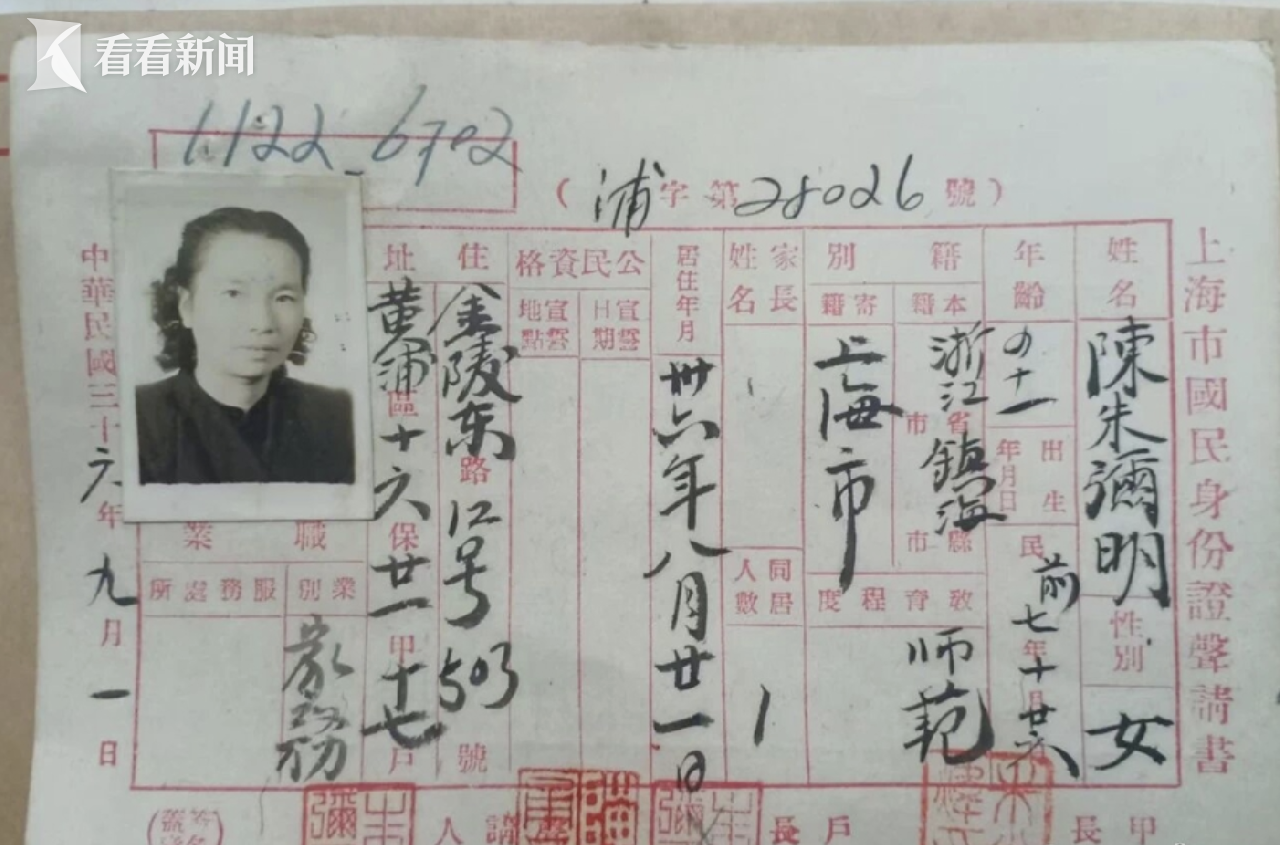 看看新闻
1122-6702
(浦字第28026號)
上海市國民身份證聲請書
姓名
陳朱彌明
性別
女
年齡
四十一
出生年月日
民前七年十月廿六
籍別
本籍
浙江省市鎮海縣市
寄籍
上海市
教育程度
师範
家長姓名
同居人數
1
居住年月
卅六年八月廿一日
公民資格
宣誓日期
宣誓地點
住址
金陵东路
号
號
黄浦區十六保廿一甲十七戶
職業
業別
家務
服務處所
中華民國三十六年九月一日
甲長
戶長
請人